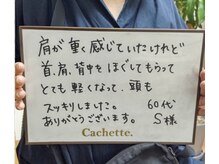 肩が重く感じていたけれど
首、肩、背中をほぐしてもらって
とても軽くなって、頭も
スッキリしました。 60代
ありがとうございます。 S様
Cachette.